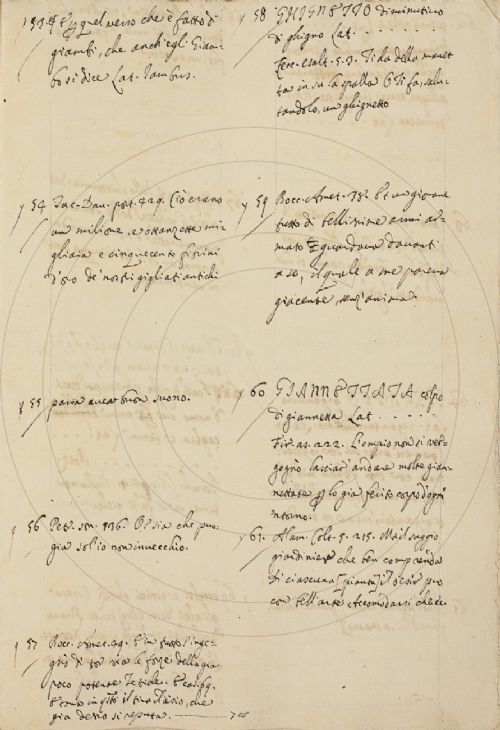 53. quel verso che è fatto di
giambi, che anch'egli Giam-
bo si dice Lat. Iambus.
54 Tac. Dav. post. 429. Ciò erano
un milione, e ottanzette mi-
gliaia e cinquecento fiorini
d'oro de' nostri gigliati antichi
55 parra aver buon suono.
56 Petr. son. O sia che pur
già sol io non invecchio.
57 Bocc. Amet. 49. È in tutto l'inge-
gno di tor via le forze della già
poco potente
che
già detto si reputa. 78
58 GHIGNETTO diminutivo
di ghigno Lat. . . . . . .
Cecc. esalt. 5. 3. Ti dà della manet
ta in su la spalla E ti fa, salu-
tandolo, un ghignetto
59 Bocc. Amet. 75. Et un giovane
tutto di bellissime armi ar-
mato guardava davanti
a se, il quale a me pareva
giacente, senz'anima.
60 GIANNETTATA colpo
di giannetta Lat. . . . . .
Fir. as. 222. L'empio non si ver-
gognò lasciar andare molte gian-
nettate lo già ferito corpo d'ogn'
intorno.
61. Alam. Colt. 5. 215. Ma il saggio
giardinier che ben comprenda
Di ciascuna
con bell'arte accomodarsi